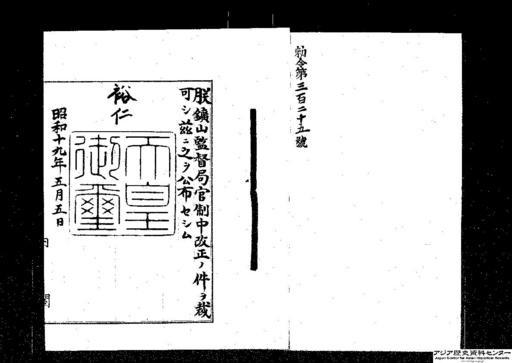 勅令第三百二十五號
朕鑛山監督局官制中改正ノ件ヲ裁
可シ茲ニ之ヲ公布セシム
裕仁
天皇
御璽
昭和十九年五月五日
内閣
アジア歴史資料センター
Japan Center for Asian Historical Records